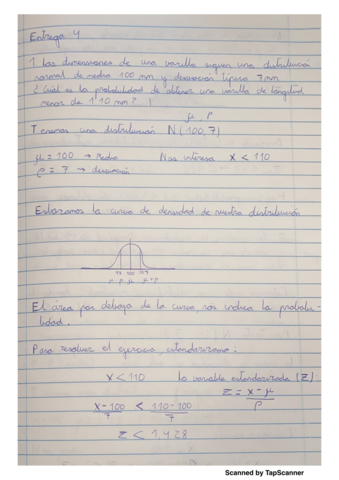 Entrega 4
1 Las dimensiones de una varilla siguen una distribución
normal de media 100 mm y desviación típica 7 mm
¿Cuál es la probabilidad de obtener una varilla de longitud
menor de 110 mm?
μ, ρ
Tenemos una distribución N(100,7)
μ = 100 → Media Nos interesa x < 110
ρ = 7 → desviación
Esbozamos la curva de densidad de nuestra distribución
93 100 107
μ-ρ μ μ+ρ
El área por debajo de la curva, nos indica la probabi-
lidad.
Para resolver el ejercicio, estandarizamos:
x < 110 La variable estandarizada (Z)
Z = x - μ / ρ
x - 100 / 7 < 110 - 100 / 7
Z < 1,428
Scanned by TapScanner